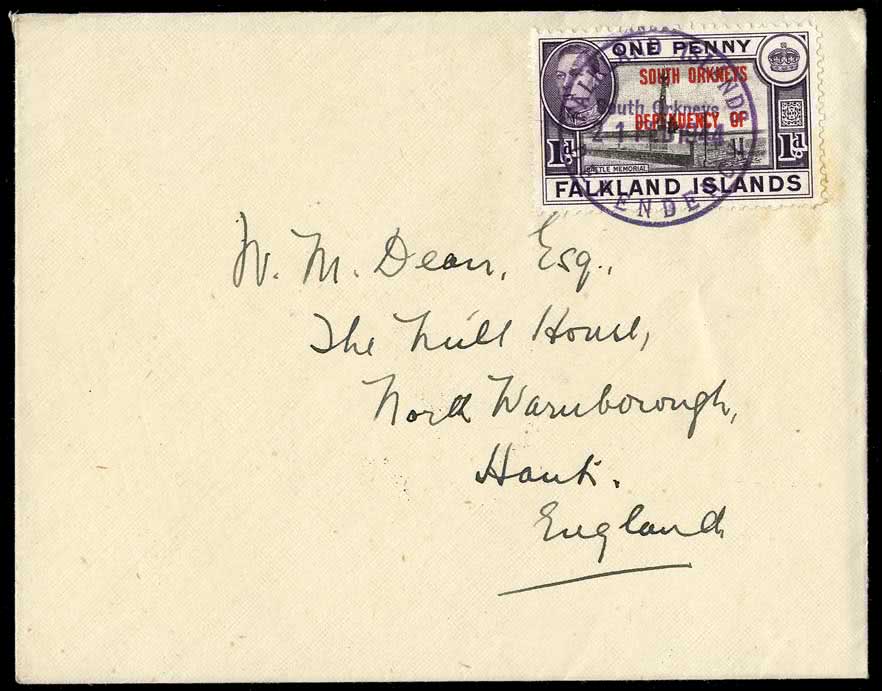 ONE PENNY
SOUTH ORKNEYS
South Orkneys
DEPENDENCY OF
21 FEB 1944
1d. 1d.
BATTLE MEMORIAL
FALKLAND ISLANDS
FALKLAND ISLANDS
W. M. Dean, Esq.,
The Mill House,
North Warnborough,
Hants.
England